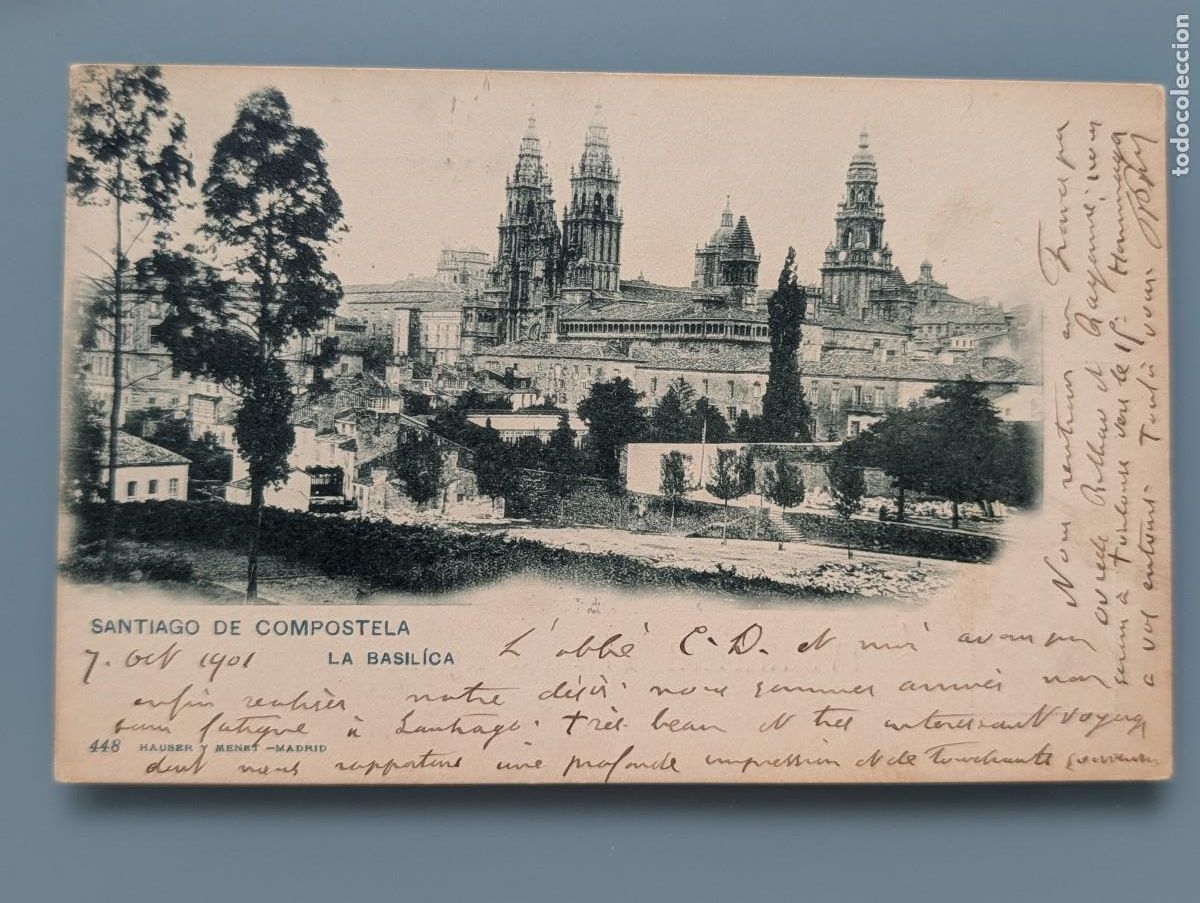 SANTIAGO DE COMPOSTELA
LA BASILÍCA
7. Oct 1901
L'abbé C.D. et moi avons pu
enfin realiser notre désir. nous sommes arrivés non
sans fatigue à Santiago. très beau et très interessant voyage
dont nous rapportons une profonde impression et de touchants souvenirs
448 HAUSER Y MENET -MADRID
Nous rentrons en France par
Oviedo Bilbao et Bayonne, nous
serons à Toulouse vers le 15. Hommages
à vous entours. Tout à vous
todocoleccion